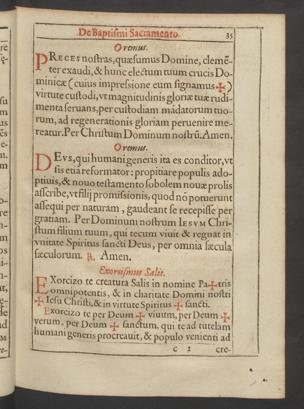 De Baptismi Sacramento. 35
Oremus.
PRECES nostras, quæsumus Domine, clemē-
ter exaudi, & hunc electum tuum crucis Do-
minicæ (cuius impressione eum signamus ✠)
virtute custodi, vt magnitudinis gloriæ tuæ rudi-
menta seruans, per custodiam mādatorum tuo-
rum, ad regenerationis gloriam peruenire me-
reatur. Per Christum Dominum nostrū. Amen.
Oremus.
DEVS, qui humani generis ita es conditor, vt
sis etiā reformator: propitiare populis ado-
ptiuis, & nouo testamento sobolem nouæ prolis
ascribe, vt filij promissionis, quod nō potuerunt
assequi per naturam, gaudeant se recepisse per
gratiam. Per Dominum nostrum IESVM Chri-
stum filium tuum, qui tecum viuit & regnat in
vnitate Spiritus sancti Deus, per omnia sæcula
sæculorum. ℟. Amen.
Exorcismus Salis.
Exorcizo te creatura Salis in nomine Pa✠tris
omnipotentis, & in charitate Domini nostri
✠ Iesu Christi, & in virtute Spiritus ✠ sancti.
Exorcizo te per Deum ✠ viuum, per Deum ✠
verum, per Deum ✠ sanctum, qui te ad tutelam
humani generis procreauit, & populo venienti ad
c 2 cre-